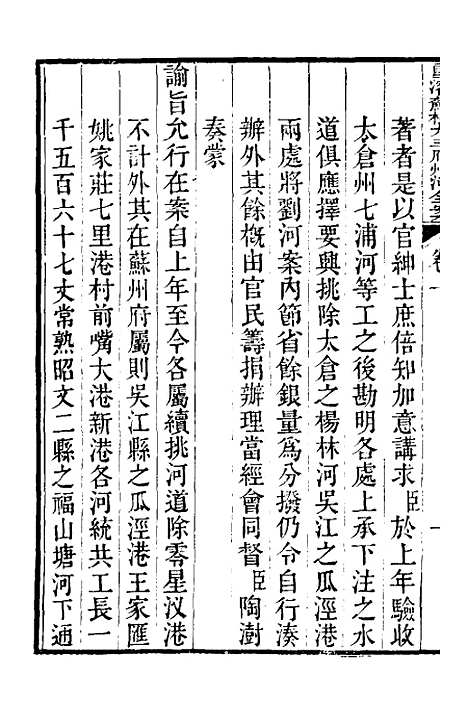 著者是以官紳士庶倍知加意講求臣於上年驗收
太倉州七浦河等工之後勘明各處上承下注之水
道俱應擇要興挑除太倉之楊林河吳江之瓜涇港
兩處將劉河案內節省餘銀量爲分撥仍令自行湊
辦外其餘槪由官民籌捐辦理當經會同督臣陶澍
奏蒙
諭旨允行在案自上年至今各屬續挑河道除零星汊港
不計外其在蘇州府屬則吳江縣之瓜涇港王家匯
姚家莊七里港村前嘴大港新港各河統共工長一
千五百六十七丈常熟昭文二縣之福山塘河下通